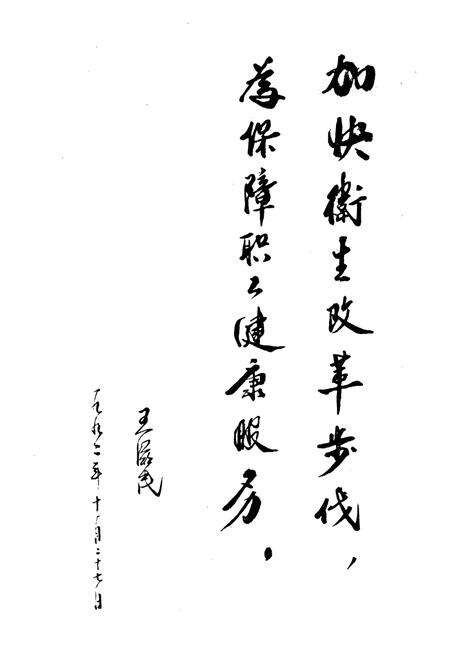 加快衛生改革步伐，
為保障职工健康服务。
王滋民
一九九二年十月二十七日